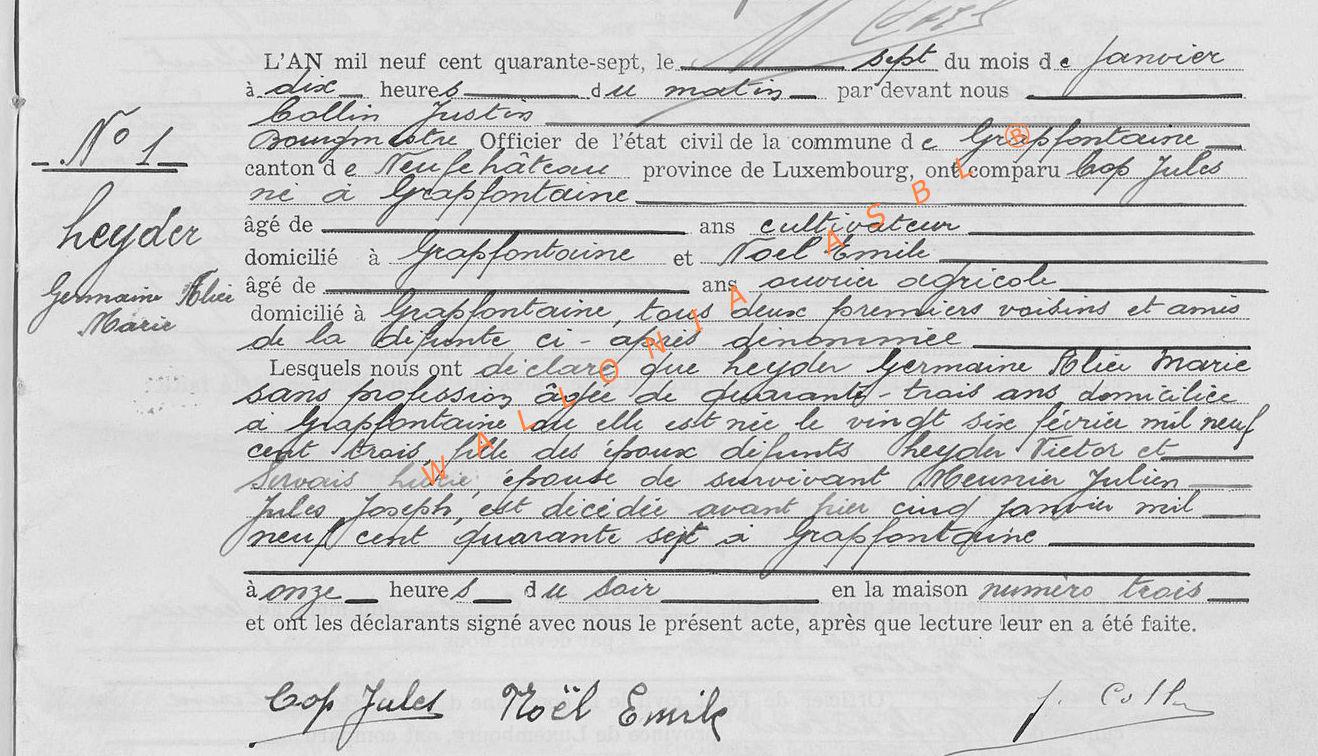 L'AN mil neuf cent quarante-sept, le sept du mois de Janvier
à dix heures du matin par devant nous
Collin Justin
Bourgmestre Officier de l'état civil de la commune de Grapfontaine
canton de Neufchâteau province de Luxembourg, ont comparu Cop Jules
né à Grapfontaine
âgé de ans cultivateur
domicilié à Grapfontaine et Noël Emile
âgé de ans ouvrier agricole
domicilié à Grapfontaine, tous deux premiers voisins et amis
de la défunte ci-après dénommée
Lesquels nous ont déclaré que heyder Germaine Alice Marie
sans profession âgée de quarante-trois ans domiciliée
à Grapfontaine où elle est née le vingt six février mil neuf
cent trois, fille des époux défunts heyder Victor et
Servais, épouse de survivant Meunier Julien
Jules Joseph, est décédée avant hier cinq janvier mil
neuf cent quarante sept à Grapfontaine
à onze heures du soir en la maison numéro trois
et ont les déclarants signé avec nous le présent acte, après que lecture leur en a été faite.
Cop Jules Noël Emile J. Collin
N° 1
heyder
Germaine Alice
Marie
WALLONIA ASBL ®